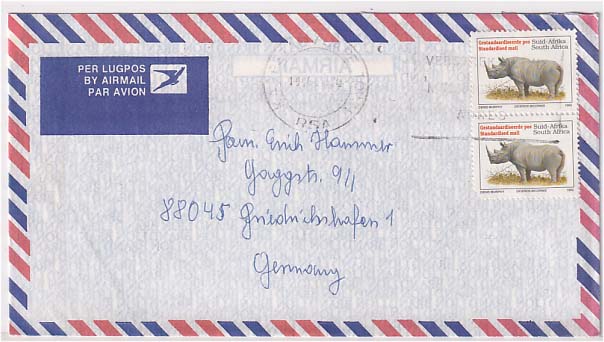 PER LUGPOS
BY AIRMAIL
PAR AVION
RSA
Gestandaardiseerde pos
Standardised mail
Suid-Afrika
South Africa
Gestandaardiseerde pos
Standardised mail
Suid-Afrika
South Africa
Fam. Erich Hammer
Jaggstr. 9/1
88045 Friedrichshafen 1
Germany